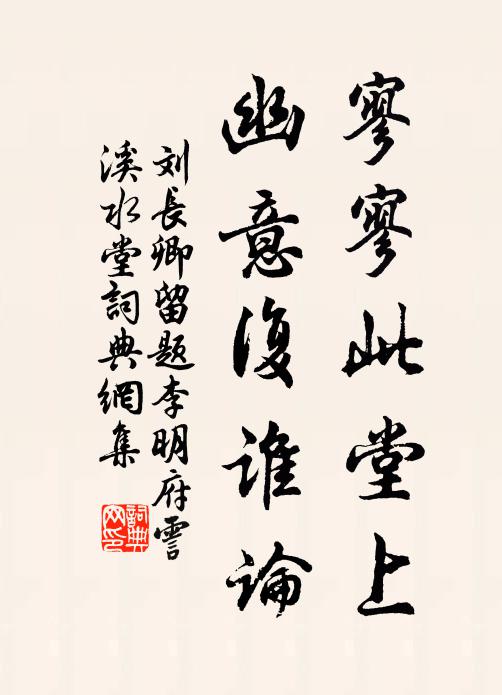 寥寥此堂上
幽意復谁論
刘長卿留題李明府霅
溪水堂詞典網集
詞典
网印